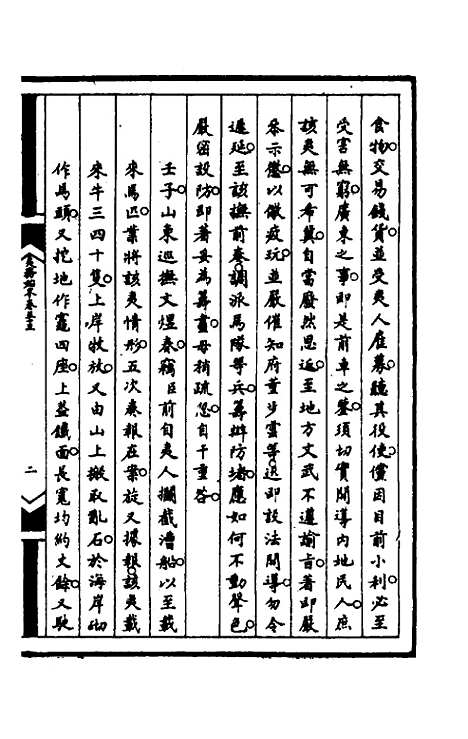 食物。交易錢貨。並受夷人雇募。聽其役使。儻因目前小利。必至
受害無窮。廣東之事。即是前車之鑒。須切實開導內地民人。庶
該夷無可希冀。自當廢然思返。至地方文武不遵諭旨。著即嚴
參示懲。以儆疲玩。並嚴催知府董步雲等。迅即設法開導。勿令
遷延。至該撫前奏調派馬隊等兵。籌辦防堵。應如何不動聲色。
嚴密設防。即著妥為籌畫。毋稍疏忽。自干重咎。
壬子。山東巡撫文煜奏。竊臣前自夷人攔截漕船。以至載
來馬匹。業將該夷情形。五次奏報在案。旋又據報。該夷載
來牛三四十隻。上岸牧放。又由山上搬取亂石。於海岸砌
作馬頭。又挖地作竈四座。上蓋鐵面。長寬均約丈餘。又馱
夷務始末卷五十五
二